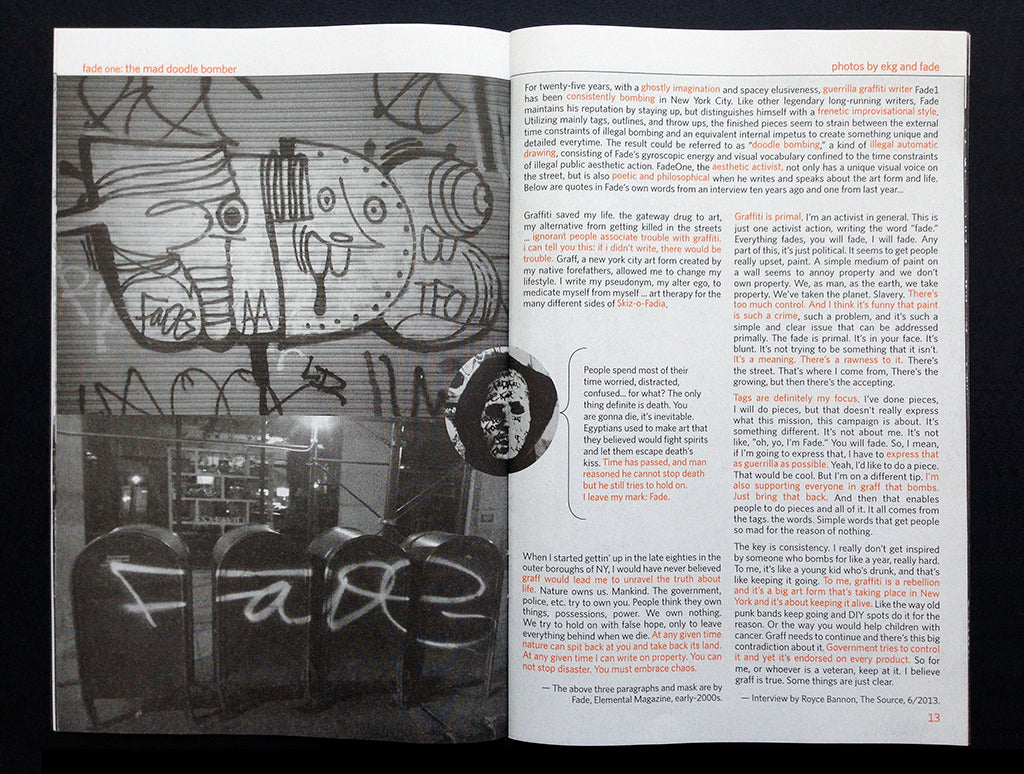 fade one: the mad doodle bomber
photos by ekg and fade
FaDE3
AA
TFO
LSD
FaDE
For twenty-five years, with a ghostly imagination and spacey elusiveness, guerrilla graffiti writer Fade1
has been consistently bombing in New York City. Like other legendary long-running writers, Fade
maintains his reputation by staying up, but distinguishes himself with a frenetic improvisational style.
Utilizing mainly tags, outlines, and throw ups, the finished pieces seem to strain between the external
time constraints of illegal bombing and an equivalent internal impetus to create something unique and
detailed everytime. The result could be referred to as "doodle bombing," a kind of illegal automatic
drawing, consisting of Fade's gyroscopic energy and visual vocabulary confined to the time constraints
of illegal public aesthetic action. FadeOne, the aesthetic activist, not only has a unique visual voice on
the street, but is also poetic and philosophical when he writes and speaks about the art form and life.
Below are quotes in Fade's own words from an interview ten years ago and one from last year...
Graffiti saved my life. the gateway drug to art,
my alternative from getting killed in the streets
... ignorant people associate trouble with graffiti.
i can tell you this: if i didn't write, there would be
trouble. Graff, a new york city art form created by
my native forefathers, allowed me to change my
lifestyle. I write my pseudonym, my alter ego, to
medicate myself from myself ... art therapy for the
many different sides of Skiz-o-Fadia.
People spend most of their
time worried, distracted,
confused... for what? The only
thing definite is death. You
are gonna die, it's inevitable.
Egyptians used to make art that
they believed would fight spirits
and let them escape death's
kiss. Time has passed, and man
reasoned he cannot stop death
but he still tries to hold on.
I leave my mark: Fade.
When I started gettin' up in the late eighties in the
outer boroughs of NY, I would have never believed
graff would lead me to unravel the truth about
life. Nature owns us. Mankind. The government,
police, etc. try to own you. People think they own
things, possessions, power. We own nothing.
We try to hold on with false hope, only to leave
everything behind when we die. At any given time
nature can spit back at you and take back its land.
At any given time I can write on property. You can
not stop disaster. You must embrace chaos.
— The above three paragraphs and mask are by
Fade, Elemental Magazine, early-2000s.
Graffiti is primal. I'm an activist in general. This is
just one activist action, writing the word "fade."
Everything fades, you will fade, I will fade. Any
part of this, it's just political. It seems to get people
really upset, paint. A simple medium of paint on
a wall seems to annoy property and we don't
own property. We, as man, as the earth, we take
property. We've taken the planet. Slavery. There's
too much control. And I think it's funny that paint
is such a crime, such a problem, and it's such a
simple and clear issue that can be addressed
primally. The fade is primal. It's in your face. It's
blunt. It's not trying to be something that it isn't.
It's a meaning. There's a rawness to it. There's
the street. That's where I come from, There's the
growing, but then there's the accepting.
Tags are definitely my focus. I've done pieces,
I will do pieces, but that doesn't really express
what this mission, this campaign is about. It's
something different. It's not about me. It's not
like, "oh, yo, I'm Fade." You will fade. So, I mean,
if I'm going to express that, I have to express that
as guerrilla as possible. Yeah, I'd like to do a piece.
That would be cool. But I'm on a different tip. I'm
also supporting everyone in graff that bombs.
Just bring that back. And then that enables
people to do pieces and all of it. It all comes from
the tags. the words. Simple words that get people
so mad for the reason of nothing.
The key is consistency. I really don't get inspired
by someone who bombs for like a year, really hard.
To me, it's like a young kid who's drunk, and that's
like keeping it going. To me, graffiti is a rebellion
and it's a big art form that's taking place in New
York and it's about keeping it alive. Like the way old
punk bands keep going and DIY spots do it for the
reason. Or the way you would help children with
cancer. Graff needs to continue and there's this big
contradiction about it. Government tries to control
it and yet it's endorsed on every product. So for
me, or whoever is a veteran, keep at it. I believe
graff is true. Some things are just clear.
— Interview by Royce Bannon, The Source, 6/2013.
13